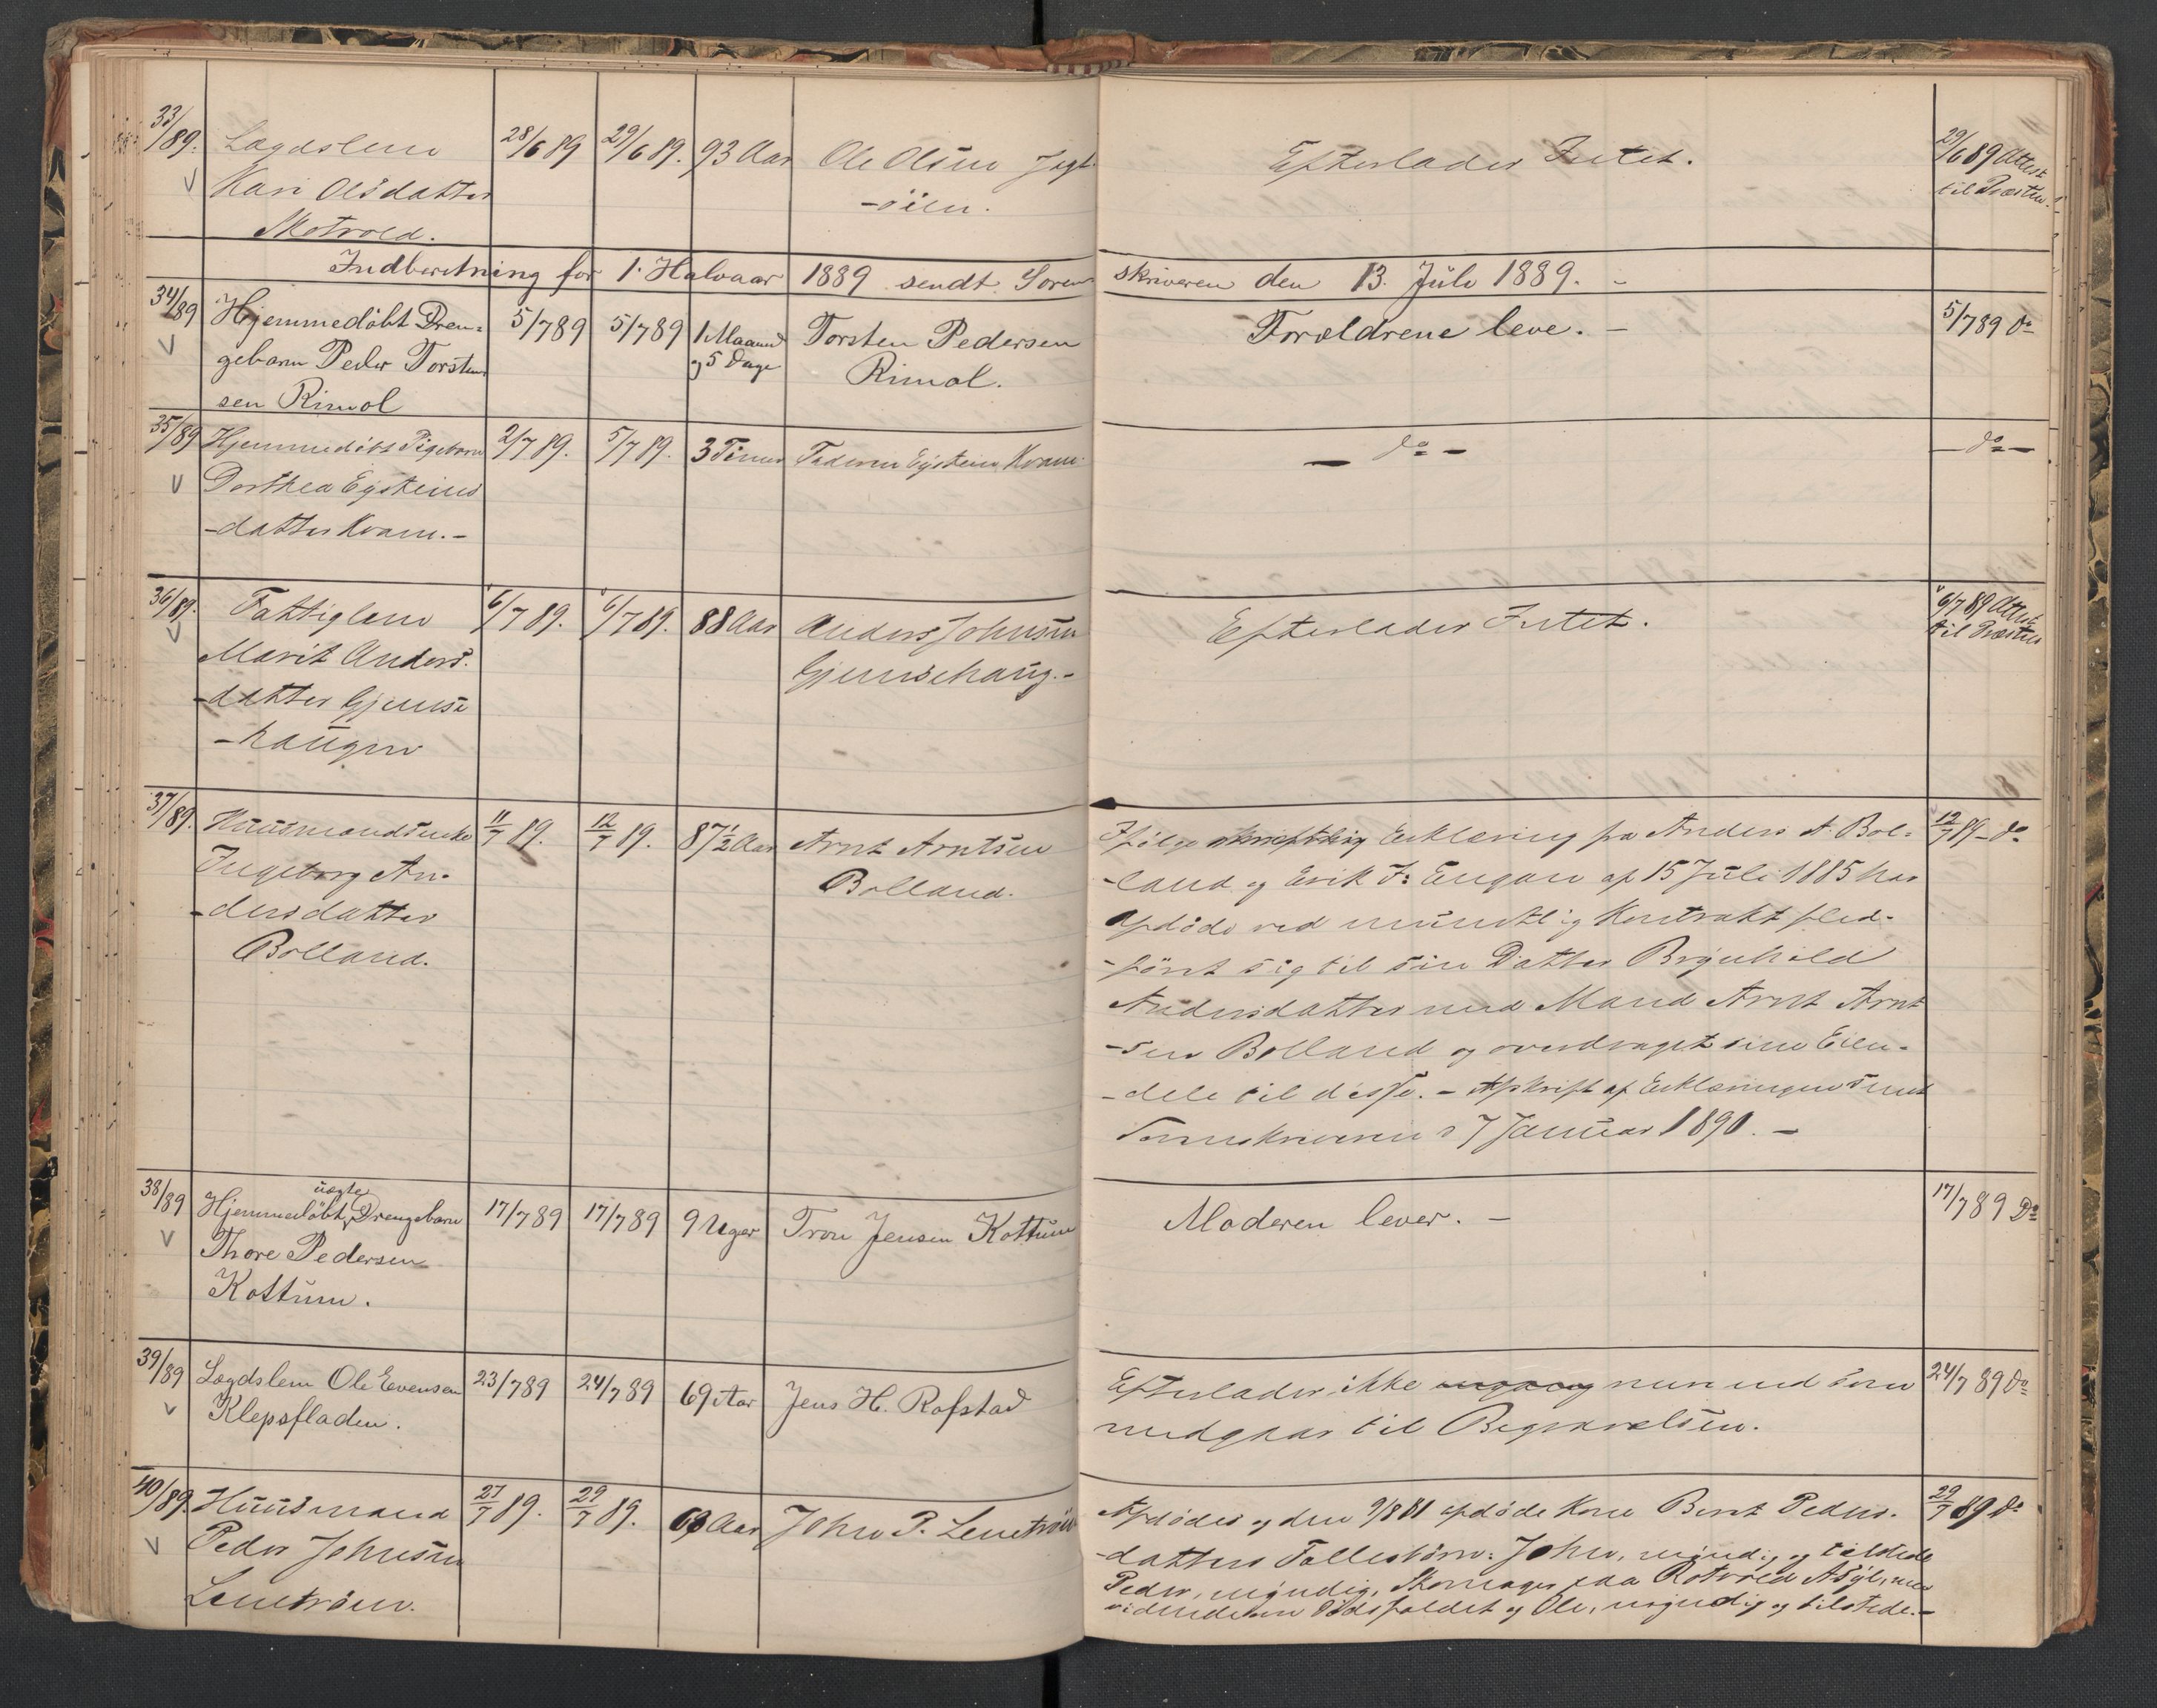 33/89. Lægdslem 28/6 89 29/6 89. 93 Aar Ole Olsen Jegt- Efterlader Intet. 29/6 89 Attest
Kari Olsdatter -öien. til Præsten.
Motvold.
Indberetning for 1. Halvaar 1889 sendt Soren skriveren den 13. Juli 1889. -
34/89 Hjemmedöbt Dren= 5/7 89 5/7 89 1 Maaned Torsten Pedersen Forældrene leve. - 5/7 89 do
gebarn Peder Torsten og 5 Dage Rimol.
sen Rimol
35/89 Hjemmedöbt Pigebarn 2/7 89. 5/7 89. 3 Timer Faderen Eysten Kvam. - do - - do -
Dorthea Eysteins
-datter Kvam. -
36/89. Fattiglem 6/7 89. 6/7 89. 88 Aar Anders Johnsen Efterlader Intet. 6/7 89 Attest
Marit Anders. Gjemsehaug. - til Præsten
-datter Gjemse
-haugen
37/89. Huusmandsenke 11/7 89. 12/7 89. 87½ Aar Arnt Arntsen Ifölge skriftlig Erklæring fra Anders A. Bol= 12/7 89 - do
Ingeborg An- Bolland. -land og Erik J. Engan af 15 Juli 1885 har
-dersdatter Afdöde ved mundtlig Kontrakt fled-
Bolland. -fört sig til sin Datter Brynhild
Andersdatter med Mand Arnt Arnt
-sen Bolland og overdraget sine Eien-
-dele til disse. - Afskrift af Erklæringen sendt
Sorenskriveren 7 Januar 1890. -
38/89 Hjemmedöbt uægte Drengebarn 17/7 89 17/7 89 9 Uger Tron Jensen Kottum Moderen lever. - 17/7 89 Do
Thore Pedersen
Kottum.
39/89 Lægdslem Ole Evensen 23/7 89 24/7 89 69 Aar Jens H. Rofstad Efterlader ikke mere end som 24/7 89 do
Klepsfladen. medgaar til Begravelsen.
40/89. Huusmand 27/7 89. 29/7 89. Aar John P. Lenetröen Afdödes og den 9/8 81 afdöde Kone Berit Peders. 29/7 89 do
Peder Johnsen -datters Fællesbörn: John, myndig og tilstede
Lenetröen. Peder, myndig, Skomager paa Rotvold Asyl,
vidende om Dödsfaldet og Ole, myndig og tilstede. -